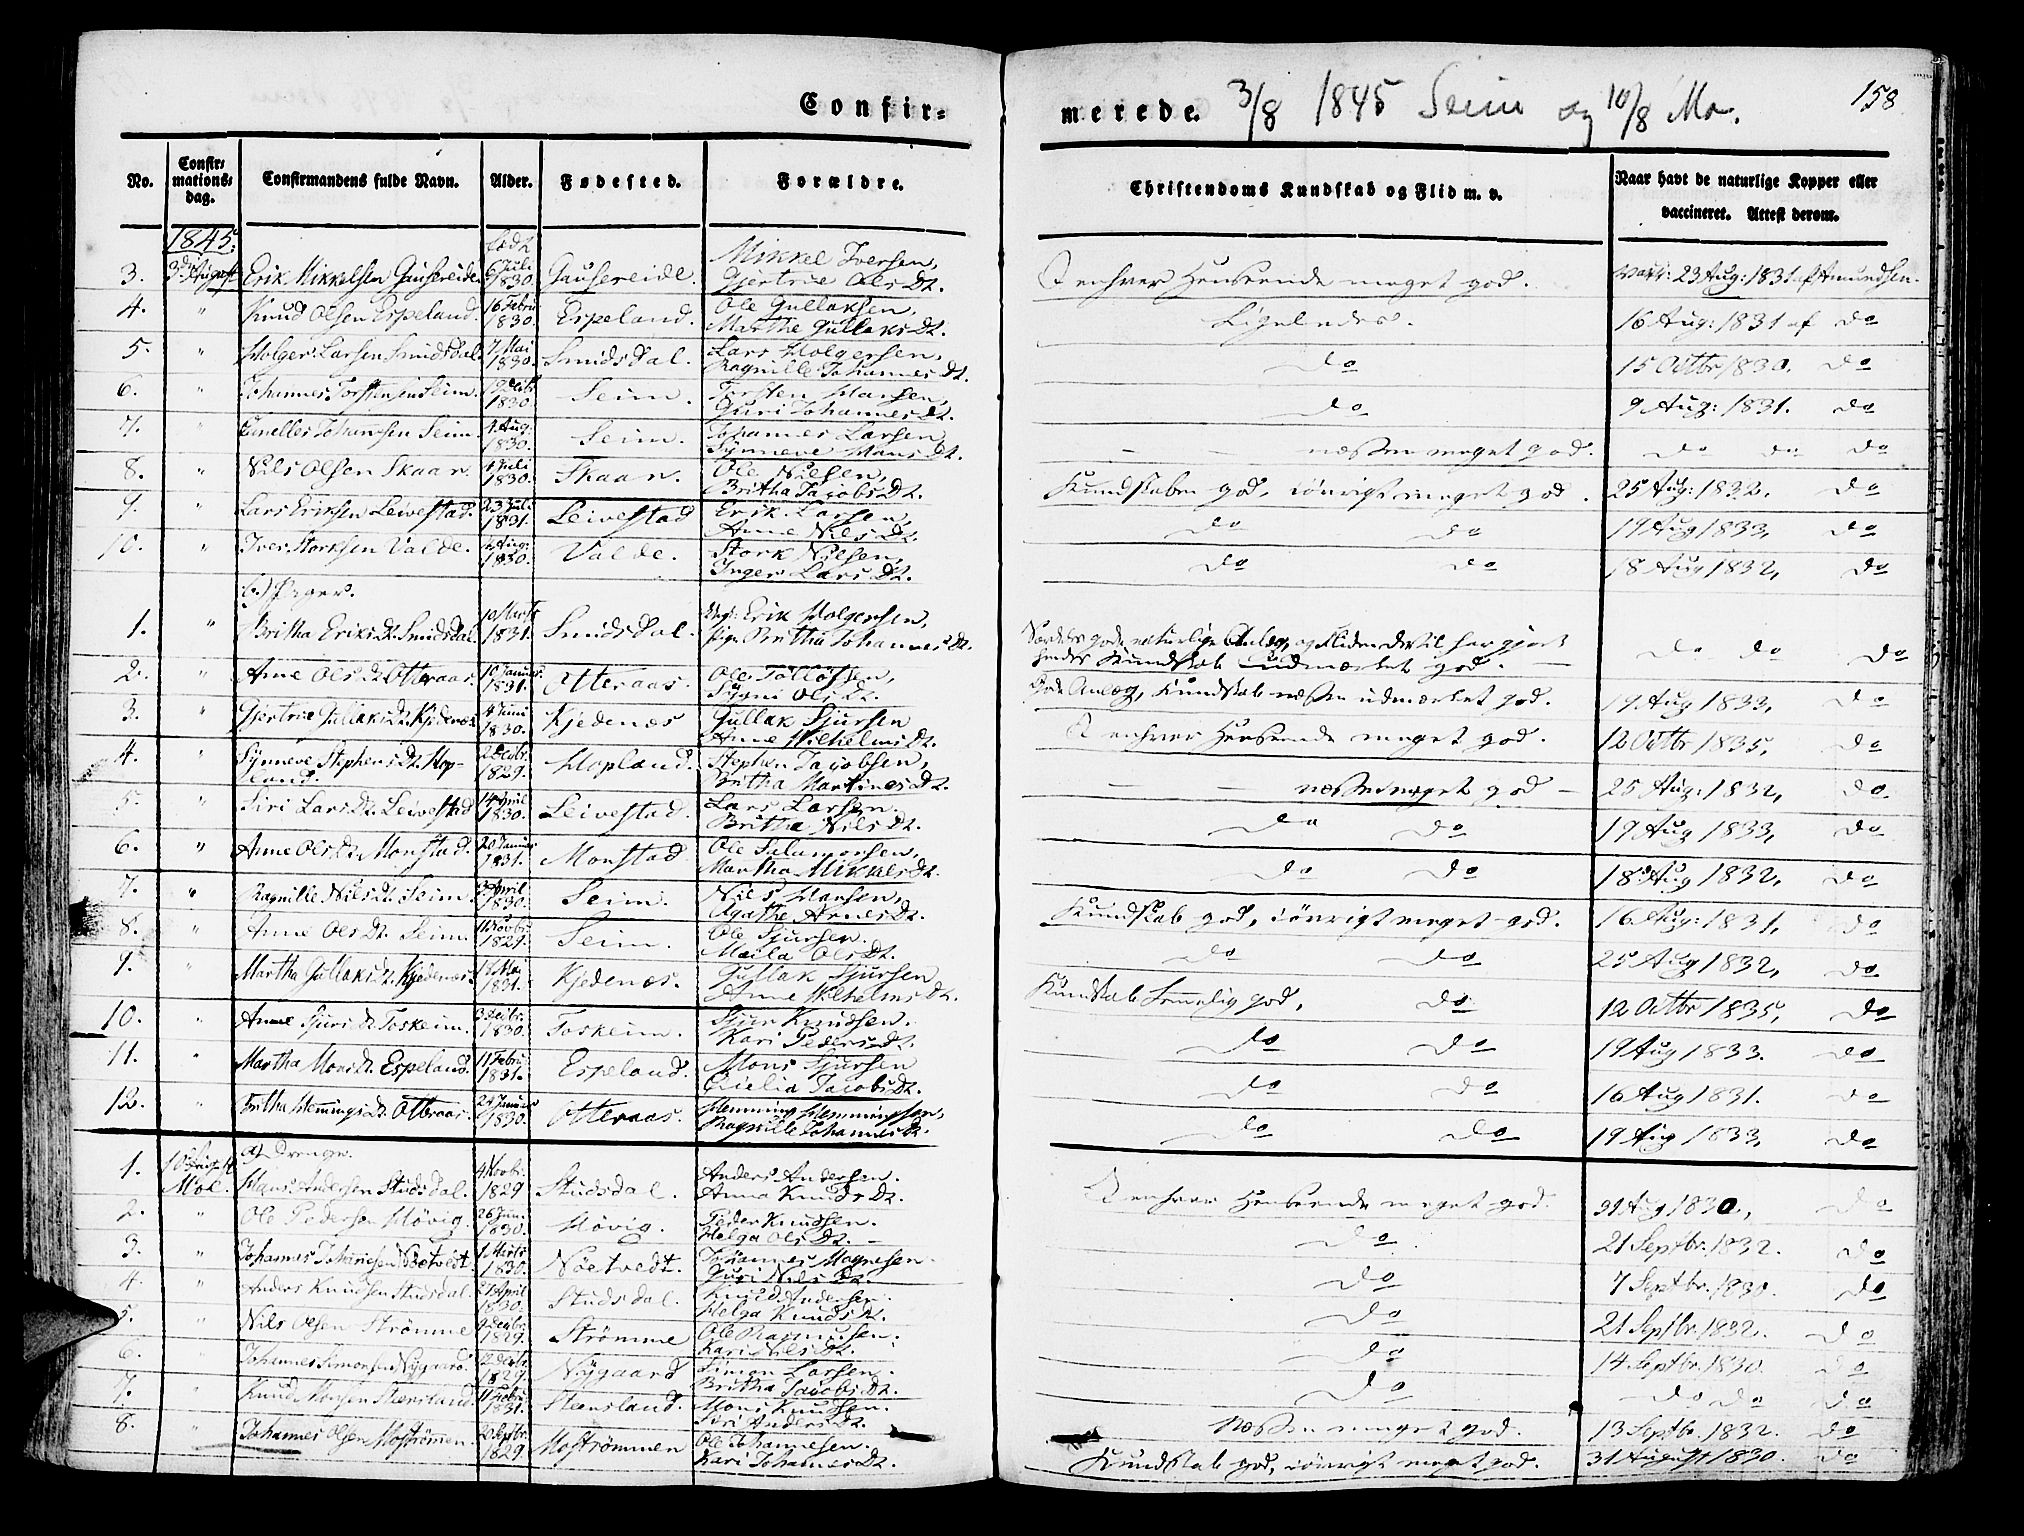 Confir- merede. 3/8 1845 Seim og 10/8 Mo. 158
No. Confir- mations- dag. Confirmandens fulde Navn. Alder. Fødested. Forældre. Christendoms Kundskab og Flid m. v. Naar havt de naturlige Kopper eller vaccineret. Attest derom.
1845. født
3. 3die August Erik Mikkelsen Gausereide 6 Juli 1830. Gausereide. Mikkel Iversen, Gjertrue Ols Dt. I enhver Henseende meget god. Vacc: 23 Aug: 1831 af Amundsen.
4. " Knud Olsen Espeland. 16 Febru 1830. Espeland. Ole Gullaksen, Martha Gullaks Dt. Ligeledes. 16 Aug: 1831 af do
5. " Holger Larsen Smidsdal. 7 Mai 1830. Smidsdal. Lars Holgersen, Ragnille Johannes Dt. do 15 Octbr 1830. do
6. " Johannes Torstensen Seim. 1830. Seim. Torsten Hansen, Guri Johannes Dt. do 9 Aug: 1831. do
7. " Johannsen Seim. 4 Aug: 1830. Seim. Johannes Larsen, Synneve Hans Dt. - næsten meget god. do do do
8. " Nils Olsen Skaar. 1 Juli 1830. Skaar. Ole Nilsen, Britha Jacobs Dt. Kundskaben god, iøvrigt meget god. 25 Aug: 1832. do
9. " Lars Eriksen Leivestad. 23 Juli 1831. Leivestad Erik Larsen, Anne Nils Dt. do do 19 Aug 1833, do
10. " Iver Storksen Valde. Aug: 1830. Valde. Stork Nilsen, Inger Lars Dt. do do 18 Aug 1832, do
b.) Piger.
1. " Britha Eriks Dt. Smidsdal. 10 Marts 1831. Smidsdal. Erik Holgersen, Britha Johannes Dt. Særdeles gode naturlige Anlæg, og Fliden dertil har gjort hendes Kundskab udmærket god. do do do
2. " Anne Ols Dt. Otteraas. 10 Januar 1831. Otteraas. Ole Tolløfsen, Sygni Ols Dt. Gode Anlæg, Kundskab næsten udmærket god. 19 Aug 1833, do
3. " Gjertrue Gullaks Dt. Kjedenæs 4 Juni 1830. Kjedenæs Gullak Sjursen Anne Wilhelms Dt. I enhver Henseende meget god. 12 Octbr 1835, do
4. " Synneve Stephens Dt. Hop- land. Decbr. 1829. Hopland. Stephen Jacobsen, Britha Martines Dt. - - næsten meget god - 25 Aug: 1832, do.
5. " Siri Lars Dt. Leivestad 14 April 1830. Leivestad. Lars Larsen. Britha Nils Dt. do do 19 Aug 1833, do
6. " Anne Ols Dt. Monstad. 20 Januar 1831. Monstad. Ole Salamonsen, Martha Mikkels Dt. do do 18 Aug 1832, do
7. " Ragnille Nils Dt. Seim. April 1830. Seim. Nils Hansen, Agathe Arnes Dt. Kundskab god, iøvrigt meget god. 16 Aug: 1831, do
8. " Anne Ols Dt. Seim. Novbr. 1829. Seim. Ole Sjursen. Maila Ols Dt. do do 25 Aug 1832, do
9. " Martha Gullaks Dt. Kjedenæs. 1831. Kjedenæs. Gullak Sjursen Anne Wilhelms Dt. Kundskab temmelig god, do 12 Octbr 1835, do
10. " Anne Sjurs Dt. Toskeim. 3 Decbr. 1830. Toskeim. Sjur Knudsen. Kari Peders Dt. do do 19 Aug 1833. do
11. " Martha Mons Dt. Espeland. 11 Febru 1831. Espeland. Mons Sjursen Cicilia Jacobs Dt. do do 16 Aug 1831. do
12. " Britha Hemmings Dt. Otteraas. Januar 1830. Otteraas. Hemming Hemmingsen, Ragnille Johannes Dt. do do 19 Aug 1833, do
a) Drenge.
1. 10 August Moe. Hans Andersen Studsdal. 4 Novbr. 1829 Studsdal. Anders Andersen. Anna Knuds Dt. I enhver Henseende meget god. 31 Aug 1830, do
2. " Ole Pedersen Høvig. 26 Jun. 1830. Høvig. Peder Knudsen. Helga Ols Dt. - do 21 Septbr. 1832. do
3. " Johannes Johannesen Nøetvedt. 1 Marts 1830. Nøetvedt. Johannes Magnesen. Guri Nils Dt. do 7 Septbr. 1830. do
4. " Anders Knudsen Studsdal. 27 April 1830. Studsdal. Knud Andersen. Helga Knuds Dt. do 21 Septbr. 1832. do
5. " Nils Olsen Strømme 9 Decbr. 1829. Strømme Ole Rasmusen. Kari Nils Dt. do 14 Septbr. 1830. do
6. " Johannes Simonsen Nygaard. 12 Decbr. 1829. Nygaard Simon Larsen. Britha Jacobs Dt. do do do do
7. " Knud Monsen Steensland. 11 Febru 1831. Steensland. Mons Knudsen. Siri Anders Dt. næsten meget god. 13 Septbr. 1832. do
8. " Johannes Olsen Mostrømmen. Septbr. 1829. Mostrømmen Ole Johannesen. Kari Johannes Dt. Kundskab god, iøvrigt meget god. 31 August 1830. do